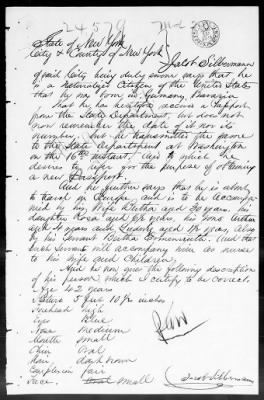 State of New York
City & County of New York
Jacob Silbermann
of said City being duly sworn says that he
is a naturalized Citizen of the United States
that he was born in Germany Bavaria
That he has heretofore received a Passport
from the State Department, but does not
now remember the date of it nor its
number, but he transmitted the same
to the State Department at Washington
on the 16th instant, and to which he
desires to refer for the purpose of obtaining
a new Passport.
And he further says that he is about
to travel in Europe and is to be accompa-
nied by his Wife aged 30 years, his
daughter Rosa aged 6½ years, his sons Arthur
aged 4 years and Ludwig aged 1½ years, also
by his servant Bertha And that
such servant will accompany him as nurse
to his wife and children.
And he now gives the following description
of his person which I certify to be correct.
Age 42 years
Stature 5 feet 10¾ inches
Forehead high
Eyes Blue
Nose medium
Mouth small
Chin Oval
Hair dark brown
Complexion fair
Face small
Jacob Silbermann